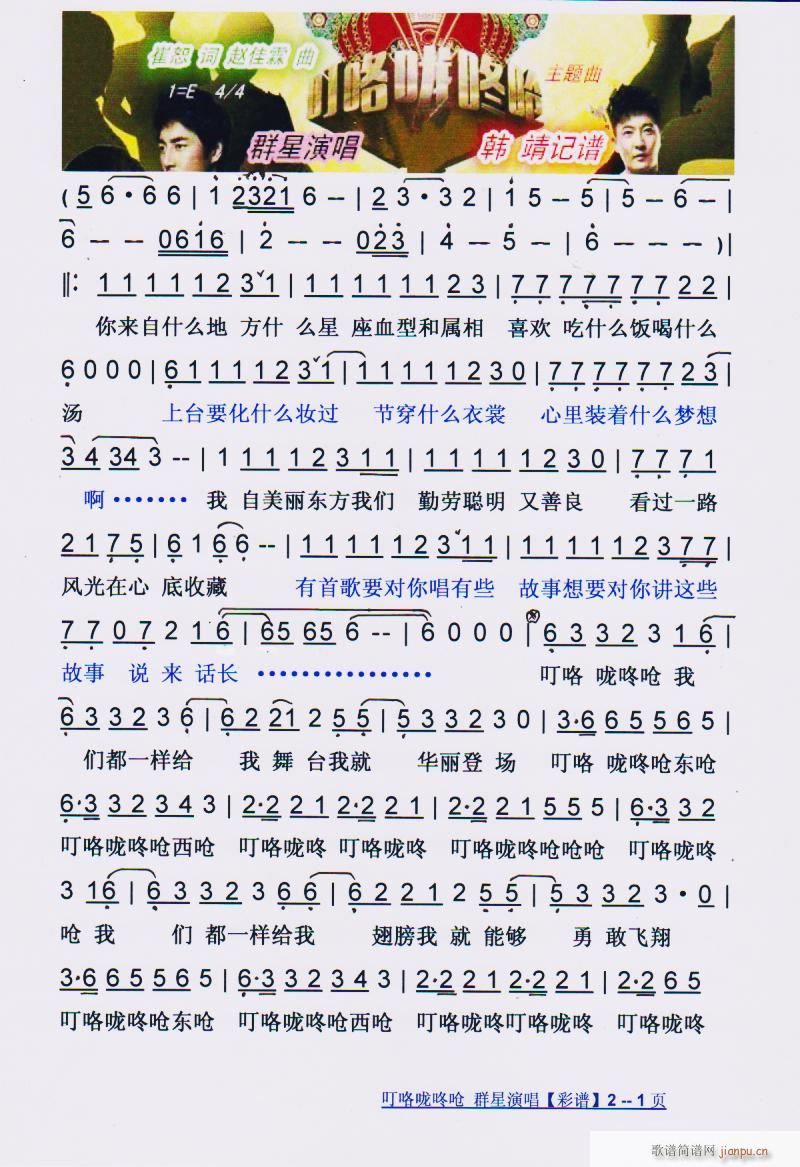 崔恕 词 赵佳霖 曲
叮咯咙咚呛
主题曲
1=E 4/4
群星演唱
韩 靖记谱
( 5 6·6 6 | 1 2321 6 -- | 2 3·3 2 | 1 5 -- 5 | 5 -- 6 -- |
6 -- -- 0616 | 2 -- -- 023 | 4 -- 5 -- | 6 -- -- -- )|
‖: 1 1 1 1 1 2 3 1 | 1 1 1 1 1 1 2 3 | 7 7 7 7 7 7 7 2 2 |
你来自什么地 方什 么星 座血型和属相 喜欢 吃什么饭喝什么
6 0 0 0 | 6 1 1 1 1 2 3 1 | 1 1 1 1 1 2 3 0 | 7 7 7 7 7 7 2 3 |
汤 上台要化什么妆过 节穿什么衣裳 心里装着什么梦想
3 4 34 3 -- | 1 1 1 1 2 3 1 1 | 1 1 1 1 1 2 3 0 | 7 7 7 1
啊 ······· 我 自美丽东方我们 勤劳聪明 又善良 看过一路
2 1 7 5 | 6 1 6 6 -- | 1 1 1 1 1 2 3 1 1 | 1 1 1 1 1 2 3 7 7 |
风光在心 底收藏 有首歌要对你唱有些 故事想要对你讲这些
7 7 0 7 2 1 6 | 65 65 6 -- | 6 0 0 0 | 6 3 3 2 3 1 6 |
故事 说 来 话长 ················ 叮咯 咙咚呛 我
6 3 3 2 3 6 | 6 2 21 2 5 5 | 5 3 3 2 3 0 | 3·6 6 5 5 6 5 |
们都一样给 我 舞 台我就 华丽登 场 叮咯 咙咚呛东呛
6·3 3 2 3 4 3 | 2·2 2 1 2·2 2 1 | 2·2 2 1 5 5 5 | 6·3 3 2
叮咯咙咚呛西呛 叮咯咙咚 叮咯咙咚 叮咯咙咚呛呛呛 叮咯咙咚
3 16 | 6 3 3 2 3 6 6 | 6 2 2 1 2 5 5 | 5 3 3 2 3·0 |
呛 我 们 都一样给我 翅膀我 就 能够 勇 敢飞翔
3·6 6 5 5 6 5 | 6·3 3 2 3 4 3 | 2·2 2 1 2·2 2 1 | 2·2 6 5
叮咯咙咚呛东呛 叮咯咙咚呛西呛 叮咯咙咚叮咯咙咚 叮咯咙咚
叮咯咙咚呛 群星演唱【彩谱】2 -- 1 页
歌谱简谱网
jianpu.cn